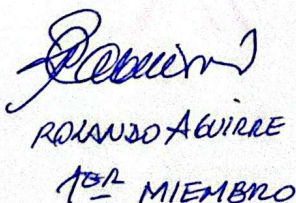 ROLANDO AGUIRRE
1ER MIEMBRO